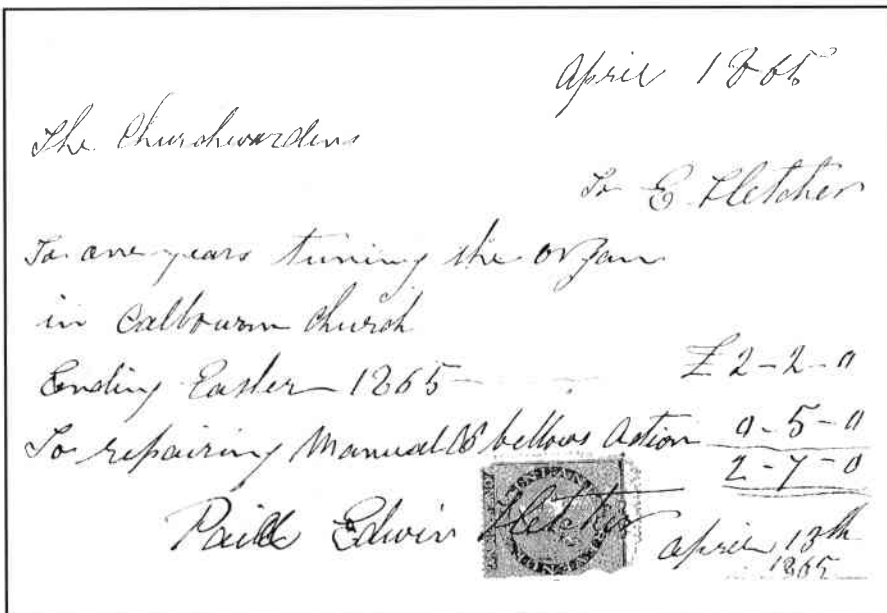 April 1865
The Churchwardens
To E. Fletcher
To one years tuning the organ
in Calbourn Church
Ending Easter 1865 £ 2-2-0
To repairing Manual & bellows Action 0-5-0
2-7-0
Paid Edwin Fletcher April 13th
1865